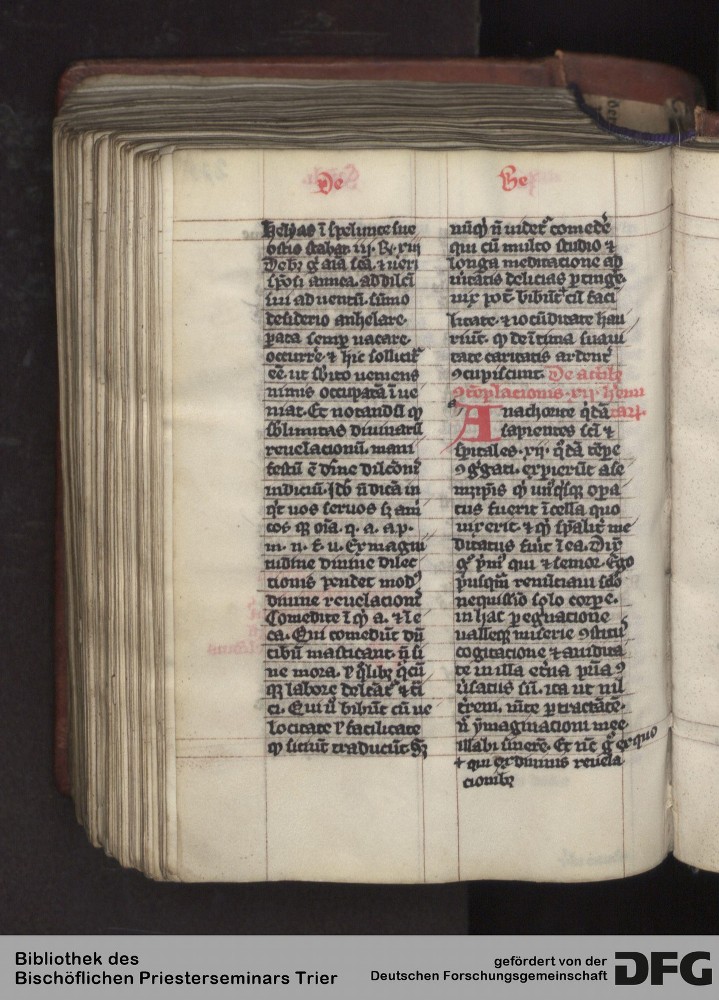 De
helyas ī spelunce sue
ostio stabat iij. R. xiij
Debz gͦ aīa scā. ⁊ veri
spōsi amica. ad dilcī
sui adventū. sūmo
desiderio anhelare.
pata semp vacare.
occurre. ⁊ hic sollicit
eē ut sbito veniens
nimis occupatā īve
niat. Et notandū qͥ
sblimitas divinarū
revelacionū. mani
festū ē dīne dilcōnꝭ
indiciū. Iō n̄ dicā iā
vos servos sꝫ ami
cos qꝫ oīa. q. a. a. p.
m. n. f. v. Ex magni
tudine divine dilec
tionis pendet modꝰ
divine revelacionꝭ
Comedite ī qͥ a. ⁊ īe
ca. Qui comedūt dū
cibū masticant. n̄ si
ne mora.
labore
ci. Qui ū bibūt cū ve
locitate ł facilitate
qͥ siciūt traducūt Sꝫ
Ge
nūqͥ n̄ videt comedē
qui cū multo studio ⁊
longa meditacione ad
vitatis delicias ptinge
vix pot. bibūt cū faci
litate. ⁊ iocūditate hau
riūt. qͥ de ītima suavi
tate caritatis ardenṫ
ꝯcupiscunt. De actibꝫ
ꝯtēplacionis. xij. heīni
Anachorite qͥdā tarꝭ.
sapientes scī ⁊
spitales. xij. qͥdā tēpe
ꝯgͣgati. expierūt a se
qͥ unꝰqͥsqꝫ opa
tus fuerit ī cella quo
vixerit. ⁊ qͥ spalit me
ditatus fuit ī ea. Dix
gͦ pmꝰ qui ⁊ senior. Ego
pusqͣm renūciavi sclo
nequissīo solo corpe.
in hac pegnacione
valleqꝫ miserie ꝯstitꝰ
cogitacione ⁊ avidita
te in illa etna pria ꝯ
vsatus sū. ita ut nil
trem. mte ptractāte.
n̄ ymaginacioni mee
illabi sinerē. Et nc gͦ ex quo
⁊ qui ex divinis revela
cionibꝫ
Bibliothek des
Bischöflichen Priesterseminars Trier
gefördert von der
Deutschen Forschungsgemeinschaft
DFG